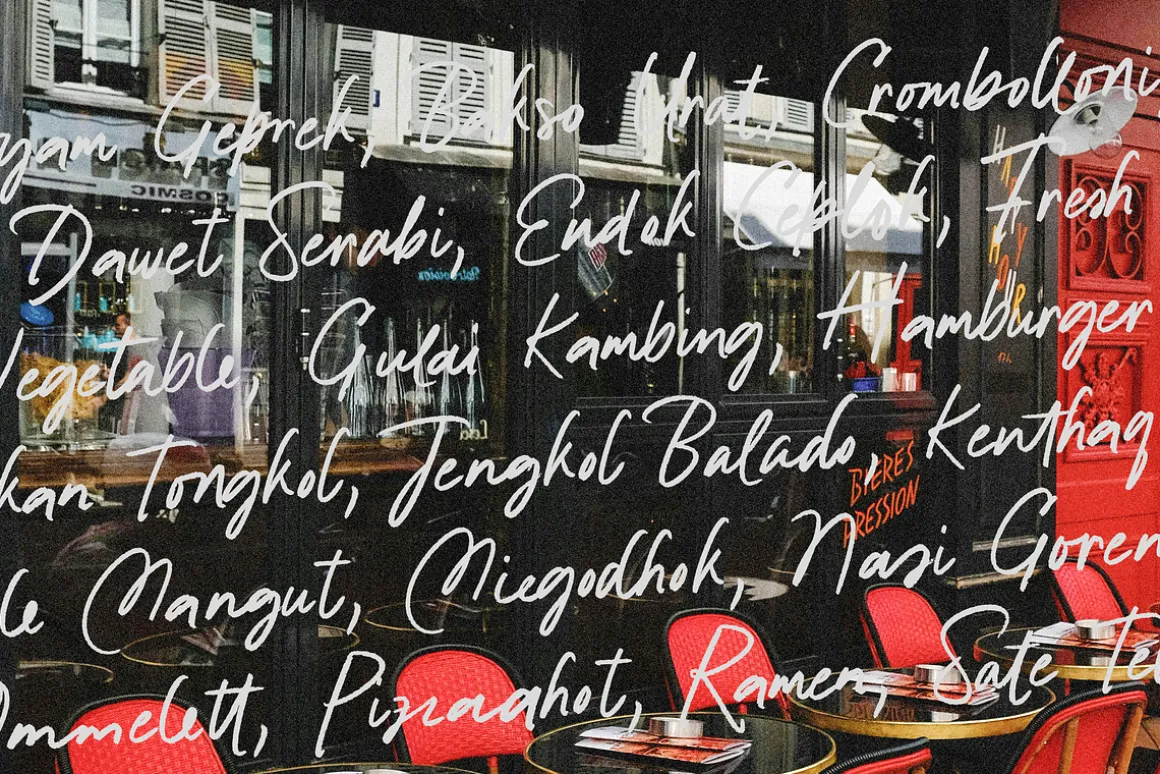 yam Geprek, Bakso Urat, Crombolloni,
Dawet Serabi, Endok Ceplok, Fresh
Vegetable, Gulai Kambing, Hamburger
kan Tongkol, Jengkol Balado, Kenthaq
le Mangut, Miegodhok, Nasi Goren
Ommelett, Pizzaahot, Ramen, Sate Te
COSMIC
HAPPY
HOUR
BIERES
PRESSION